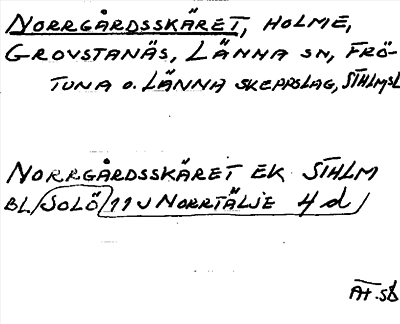 NORRGÅRDSSKÄRET, HOLME,
GROVSTANÄS, LÄNNA SN, FRÖ-
TUNA O. LÄNNA SKEPPSLAG, STHLMSL
NORRGÅRDSSKÄRET EK STHLM
BL SOLÖ 11 J NORRTÄLJE 4 d